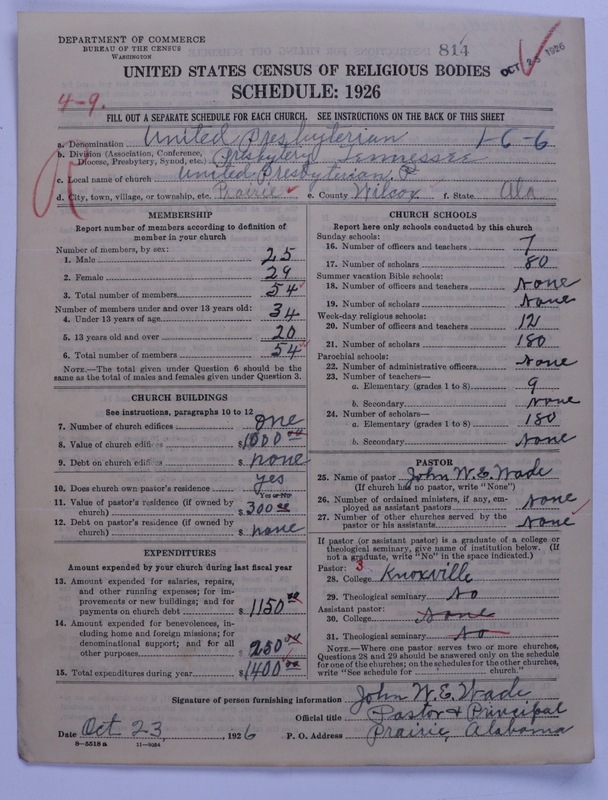 DEPARTMENT OF COMMERCE
BUREAU OF THE CENSUS
WASHINGTON
814
OCT 25 1926
UNITED STATES CENSUS OF RELIGIOUS BODIES
SCHEDULE: 1926
4-9.
FILL OUT A SEPARATE SCHEDULE FOR EACH CHURCH. SEE INSTRUCTIONS ON THE BACK OF THIS SHEET
a. Denomination United Presbyterian 1-6-6
b. Division (Association, Conference, Diocese, Presbytery, Synod, etc.) Presbytery Tennessee
c. Local name of church United Presbyterian P.
d. City, town, village, or township, etc. Prairie e. County Wilcox f. State Ala
MEMBERSHIP
Report number of members according to definition of member in your church
Number of members, by sex:
1. Male 25
2. Female 29
3. Total number of members 54
Number of members under and over 13 years old:
4. Under 13 years of age 34
5. 13 years old and over 20
6. Total number of members 54
NOTE.—The total given under Question 6 should be the same as the total of males and females given under Question 3.
CHURCH BUILDINGS
See instructions, paragraphs 10 to 12
7. Number of church edifices One
8. Value of church edifices $1000.00
9. Debt on church edifices $none
10. Does church own pastor's residence yes
Yes or No
11. Value of pastor's residence (if owned by church) $300.00
12. Debt on pastor's residence (if owned by church) $none
EXPENDITURES
Amount expended by your church during last fiscal year
13. Amount expended for salaries, repairs, and other running expenses; for improvements or new buildings; and for payments on church debt $1150.00
14. Amount expended for benevolences, including home and foreign missions; for denominational support; and for all other purposes 250.00
15. Total expenditures during year $1400.00
CHURCH SCHOOLS
Report here only schools conducted by this church
Sunday schools:
16. Number of officers and teachers 7
17. Number of scholars 80
Summer vacation Bible schools:
18. Number of officers and teachers None
19. Number of scholars None
Week-day religious schools:
20. Number of officers and teachers 12
21. Number of scholars 180
Parochial schools:
22. Number of administrative officers None
23. Number of teachers—
a. Elementary (grades 1 to 8) 9
b. Secondary None
24. Number of scholars—
a. Elementary (grades 1 to 8) 180
b. Secondary None
PASTOR
25. Name of pastor John W. E. Wade
(If church has no pastor, write "None")
26. Number of ordained ministers, if any, employed as assistant pastors None
27. Number of other churches served by the pastor or his assistants None
If pastor (or assistant pastor) is a graduate of a college or theological seminary, give name of institution below. (If not a graduate, write "No" in the space indicated.)
Pastor: 3
28. College Knoxville
29. Theological seminary No
Assistant pastor:
30. College None
31. Theological seminary No
NOTE.—Where one pastor serves two or more churches, Questions 28 and 29 should be answered only on the schedule for one of the churches; on the schedules for the other churches, write "See schedule for church."
Signature of person furnishing information John W. E. Wade
Official title Pastor & Principal
Date Oct 23, 1926 P. O. Address Prairie, Alabama
8-5518 a 11-9034